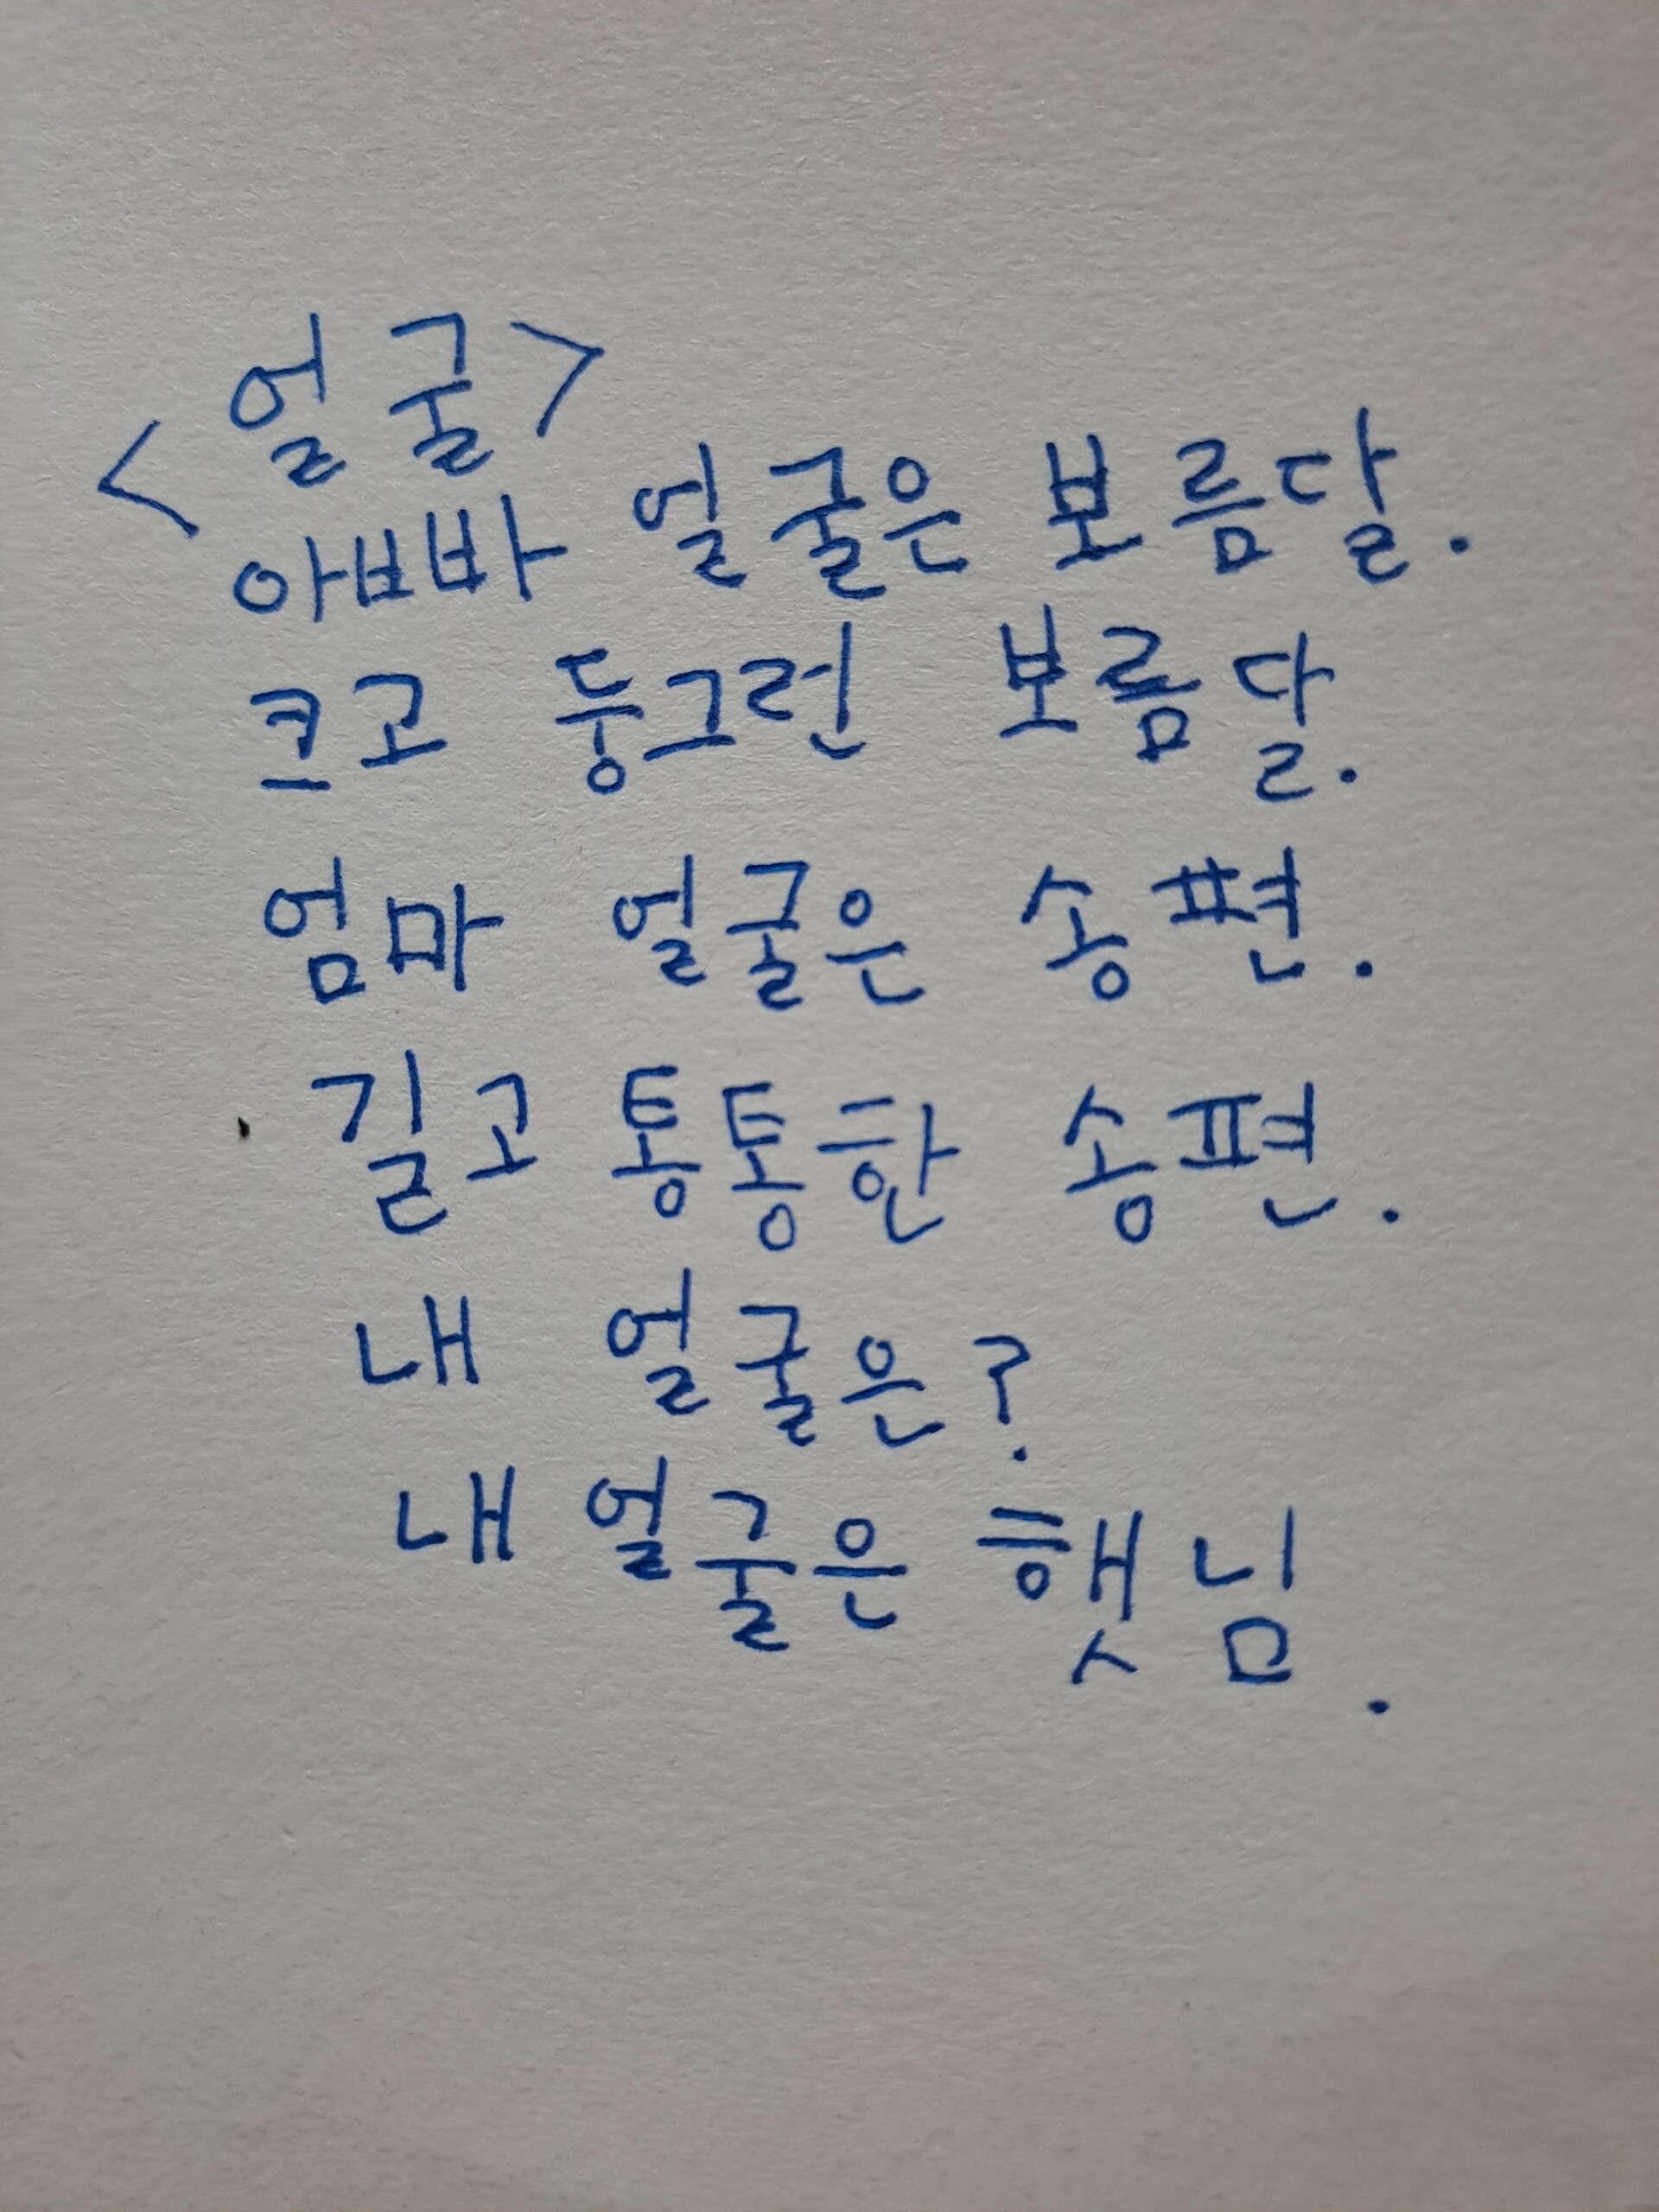 <얼굴>
아빠 얼굴은 보름달.
크고 둥그런 보름달.
엄마 얼굴은 송편.
길고 통통한 송편.
내 얼굴은?
내 얼굴은 햇님.